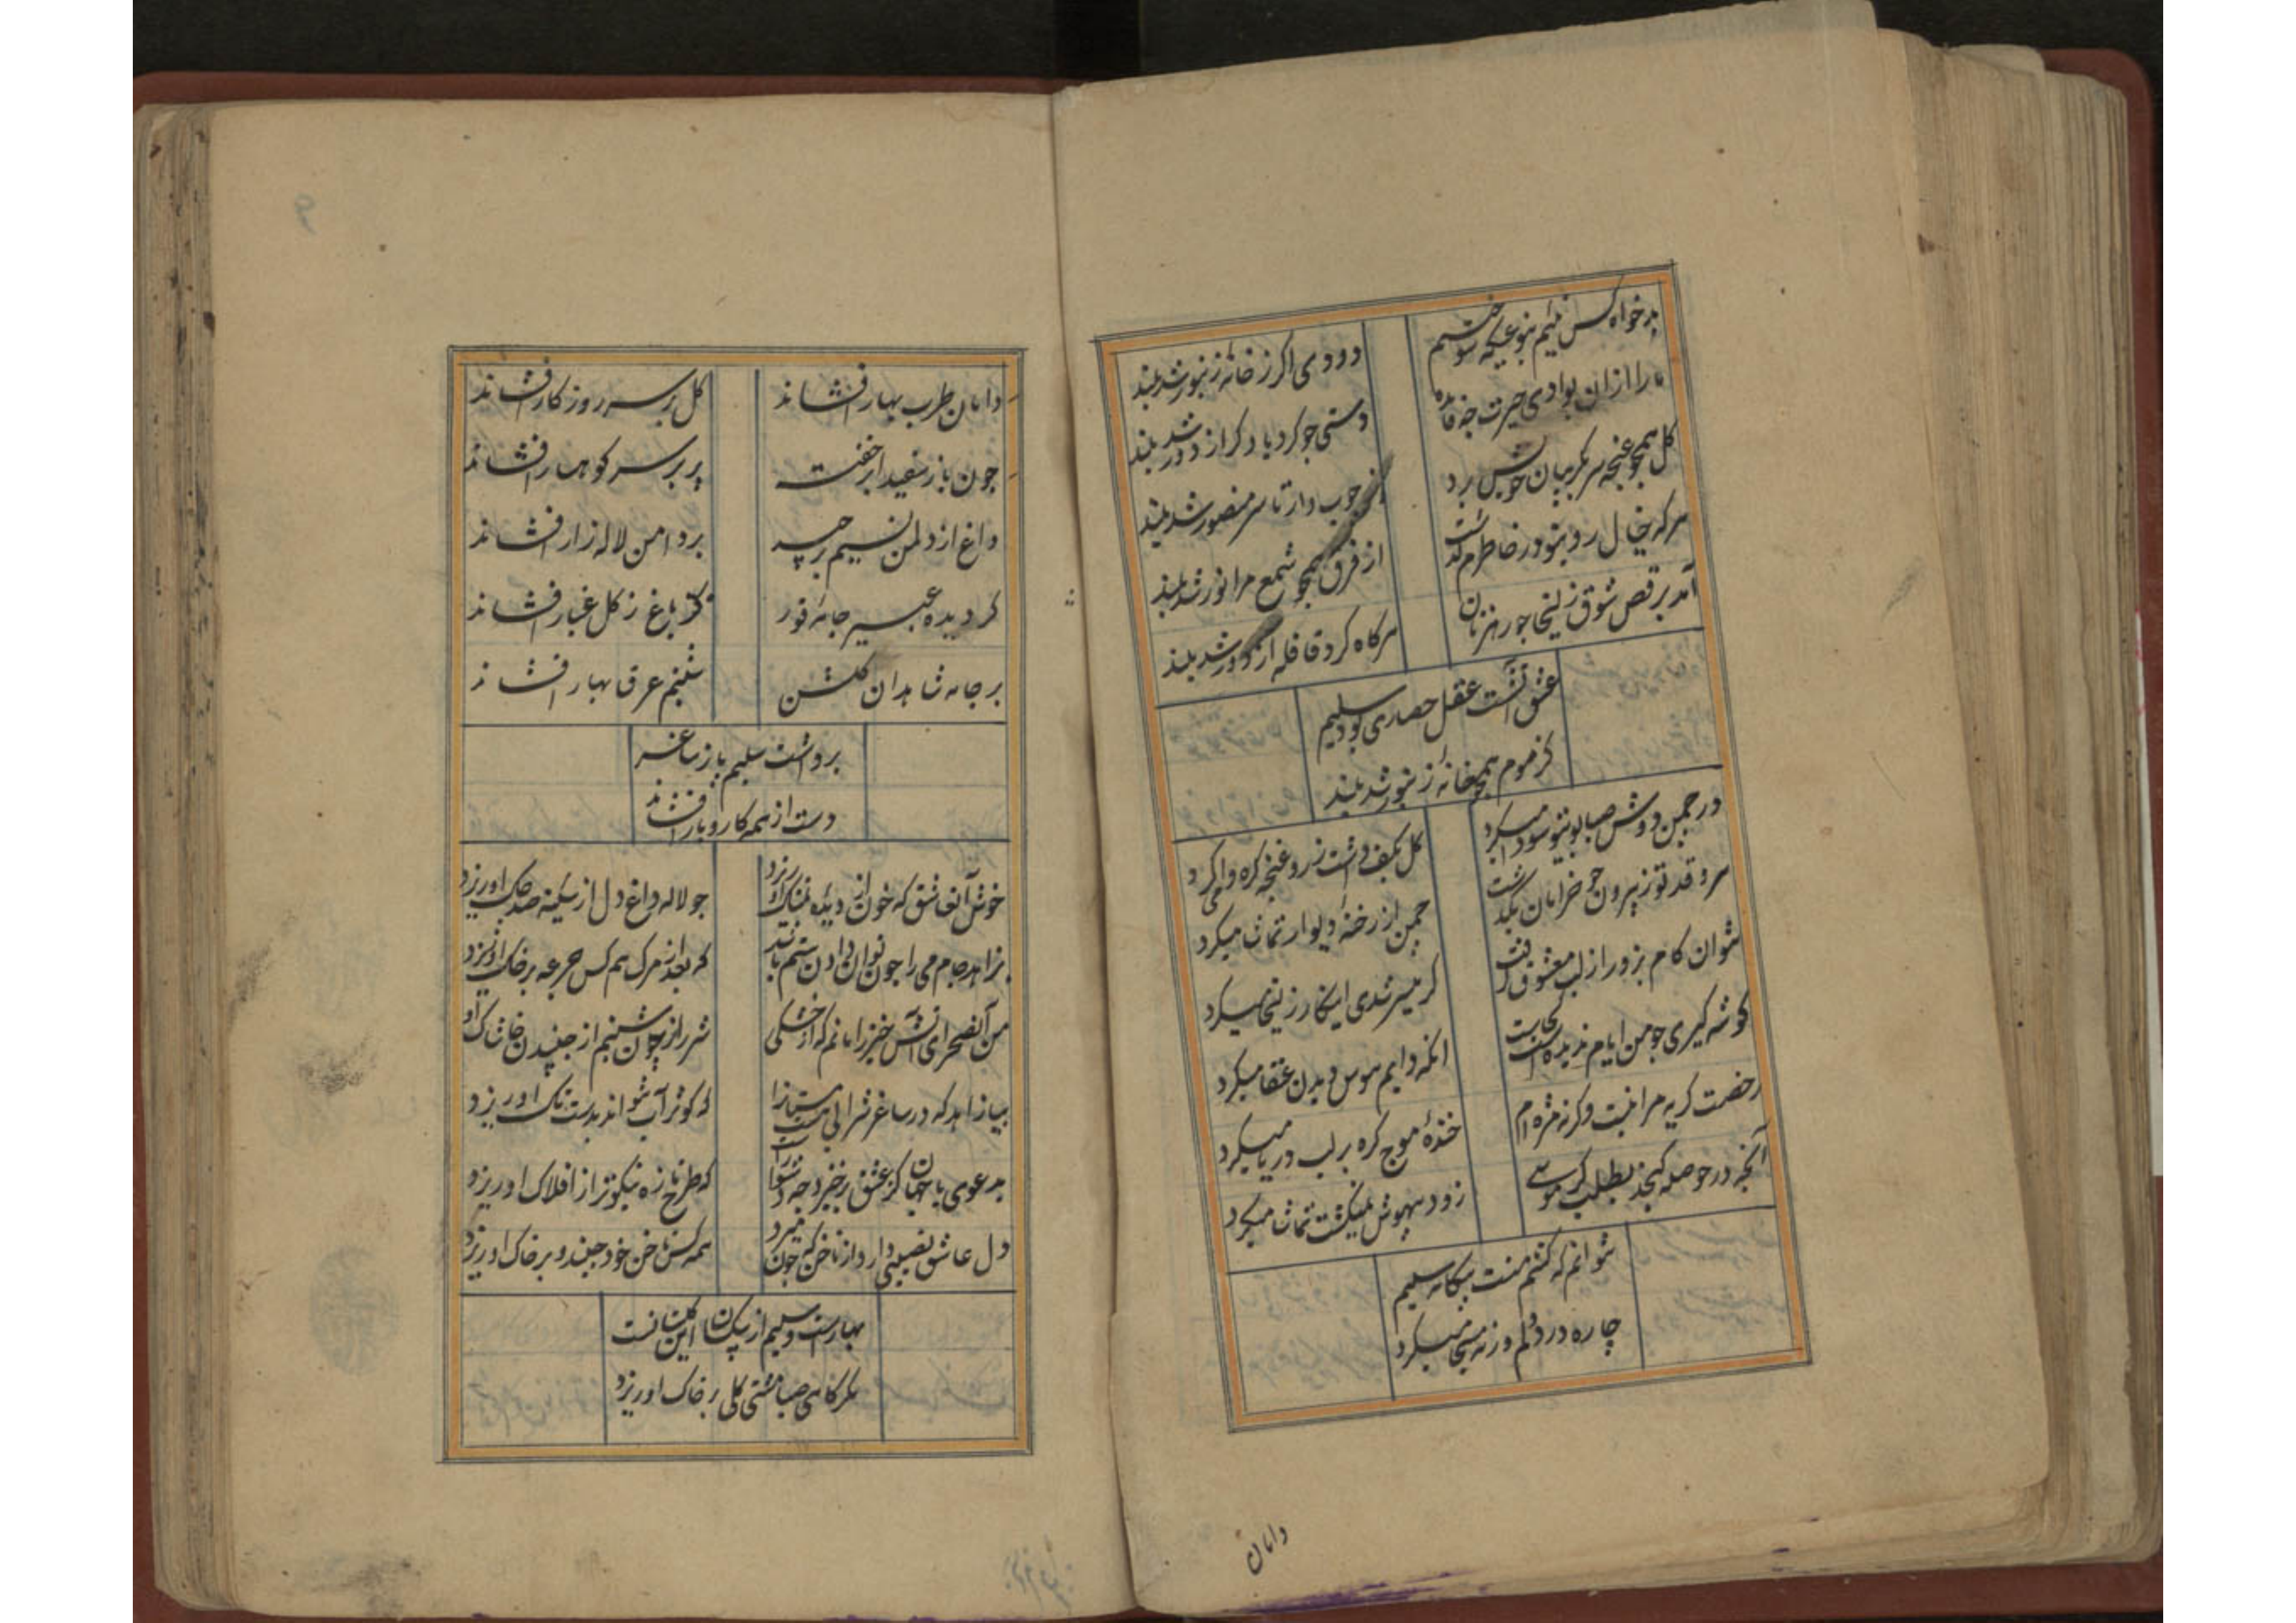 بدخواه کس نیم بنوعیکه سوختم
دودی اکر ز خانه زنبور شد بلند
ما را ازان بوادی حیرت چه فایده
دستی جو کردباد کر از دور شد بلند
کل همچو غنچه سر بکریبان خویش برد
جوب دار تا سر منصور شد بلند
هرکه خیال روی تو در خاطرم کذشت
از فرق همچو شمع مرا نور شد بلند
آمد برقص شوق زلیخا جو رهزنان
هرکاه کرد قافله از دور شد بلند
عشق آتشست عقل حصاری بود سلیم
کز موم همچو خانه زنبور شد بلند
در جمن دوش صبا بوی تو سودا میکرد
کل بکف داشت زر و غنچه کره وا میکرد
سرو قد تو ز بیرون جو خرامان بکذشت
جمن از رخنه دیوار تماشا میکرد
نتوان کام بزور از لب معشوق کرفت
کر میسر شدی اینکار زلیخا میکرد
کوشه کیری جو من ایام ندیده است کجاست
انکه دایم هوس دیدن عنقا میکرد
رخصت کریه مرا نیست وکرنه مژه ام
خندهٔ موج کره بر لب دریا میکرد
آنچه در حوصله کنجد بطلب کر موسی
زود بیهوش نمیکشت تماشا میکرد
نتوانم که کشم منت بیکانه سلیم
چاره درد دلم ورنه مسیحا میکرد
دامان
دامان طرب بهار افشاند
کل بر سر روزکار افشاند
جون باز سفید ابر خفت
پر بر سر کوهسار افشاند
داغ از دل من نسیم برچید
بر دامن لاله زار افشاند
کردیده عبیر جامه قور
کز باغ ز کل غبار افشاند
بر جامه شاهدان کلشن
شبنم عرق بهار افشاند
برداشت سلیم باز ساغر
دست از همه کار و بار افشاند
خوش آن عاشق که خون از دیده نمناک او ریزد
جو لاله داغ دل از سینه صد چاک او ریزد
بزاهد جام می را جون توان دادن ستم باشد
که بعد از مرک هم کس جرعه بر خاک او ریزد
من آن صحرای آتش خیز را مانم که از خشکی
شرار از چان شبنم از جنبیدن خاشاک او
بیا زاهد که در ساغر شرابی هست مستانرا
که کوثر آب نتواند بدست تاک او ریزد
بدعوی با جهان کر عشق برخیزد جه دشوار
که طرح تازه نیکوتر از افلاک او ریزد
دل عاشق نصیبی دارد از ناخن که جون میرد
همه کس ناخن خود جیند و بر خاک او ریزد
بهارست و سلیم از بیکسان این کلستانست
مکر کاهی صبا مشتی کلی بر خاک او ریزد